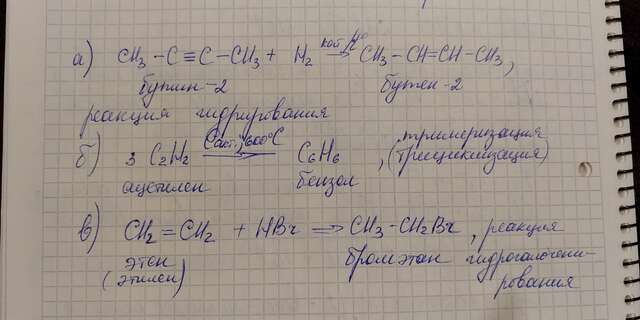 а) CH₃ -C≡C-CH₃ + H₂ → CH₃-CH=CH-CH₃,
бутин-2 бутен-2
реакция гидрирования
б) 3 C₂H₂ Cакт., 600°C → C₆H₆, тримеризация
ацетилен бензол
в) CH₂=CH₂ + HBr → CH₃-CH₂Br, реакция
этен бромэтан гидрогалогени-
(этилен) рования